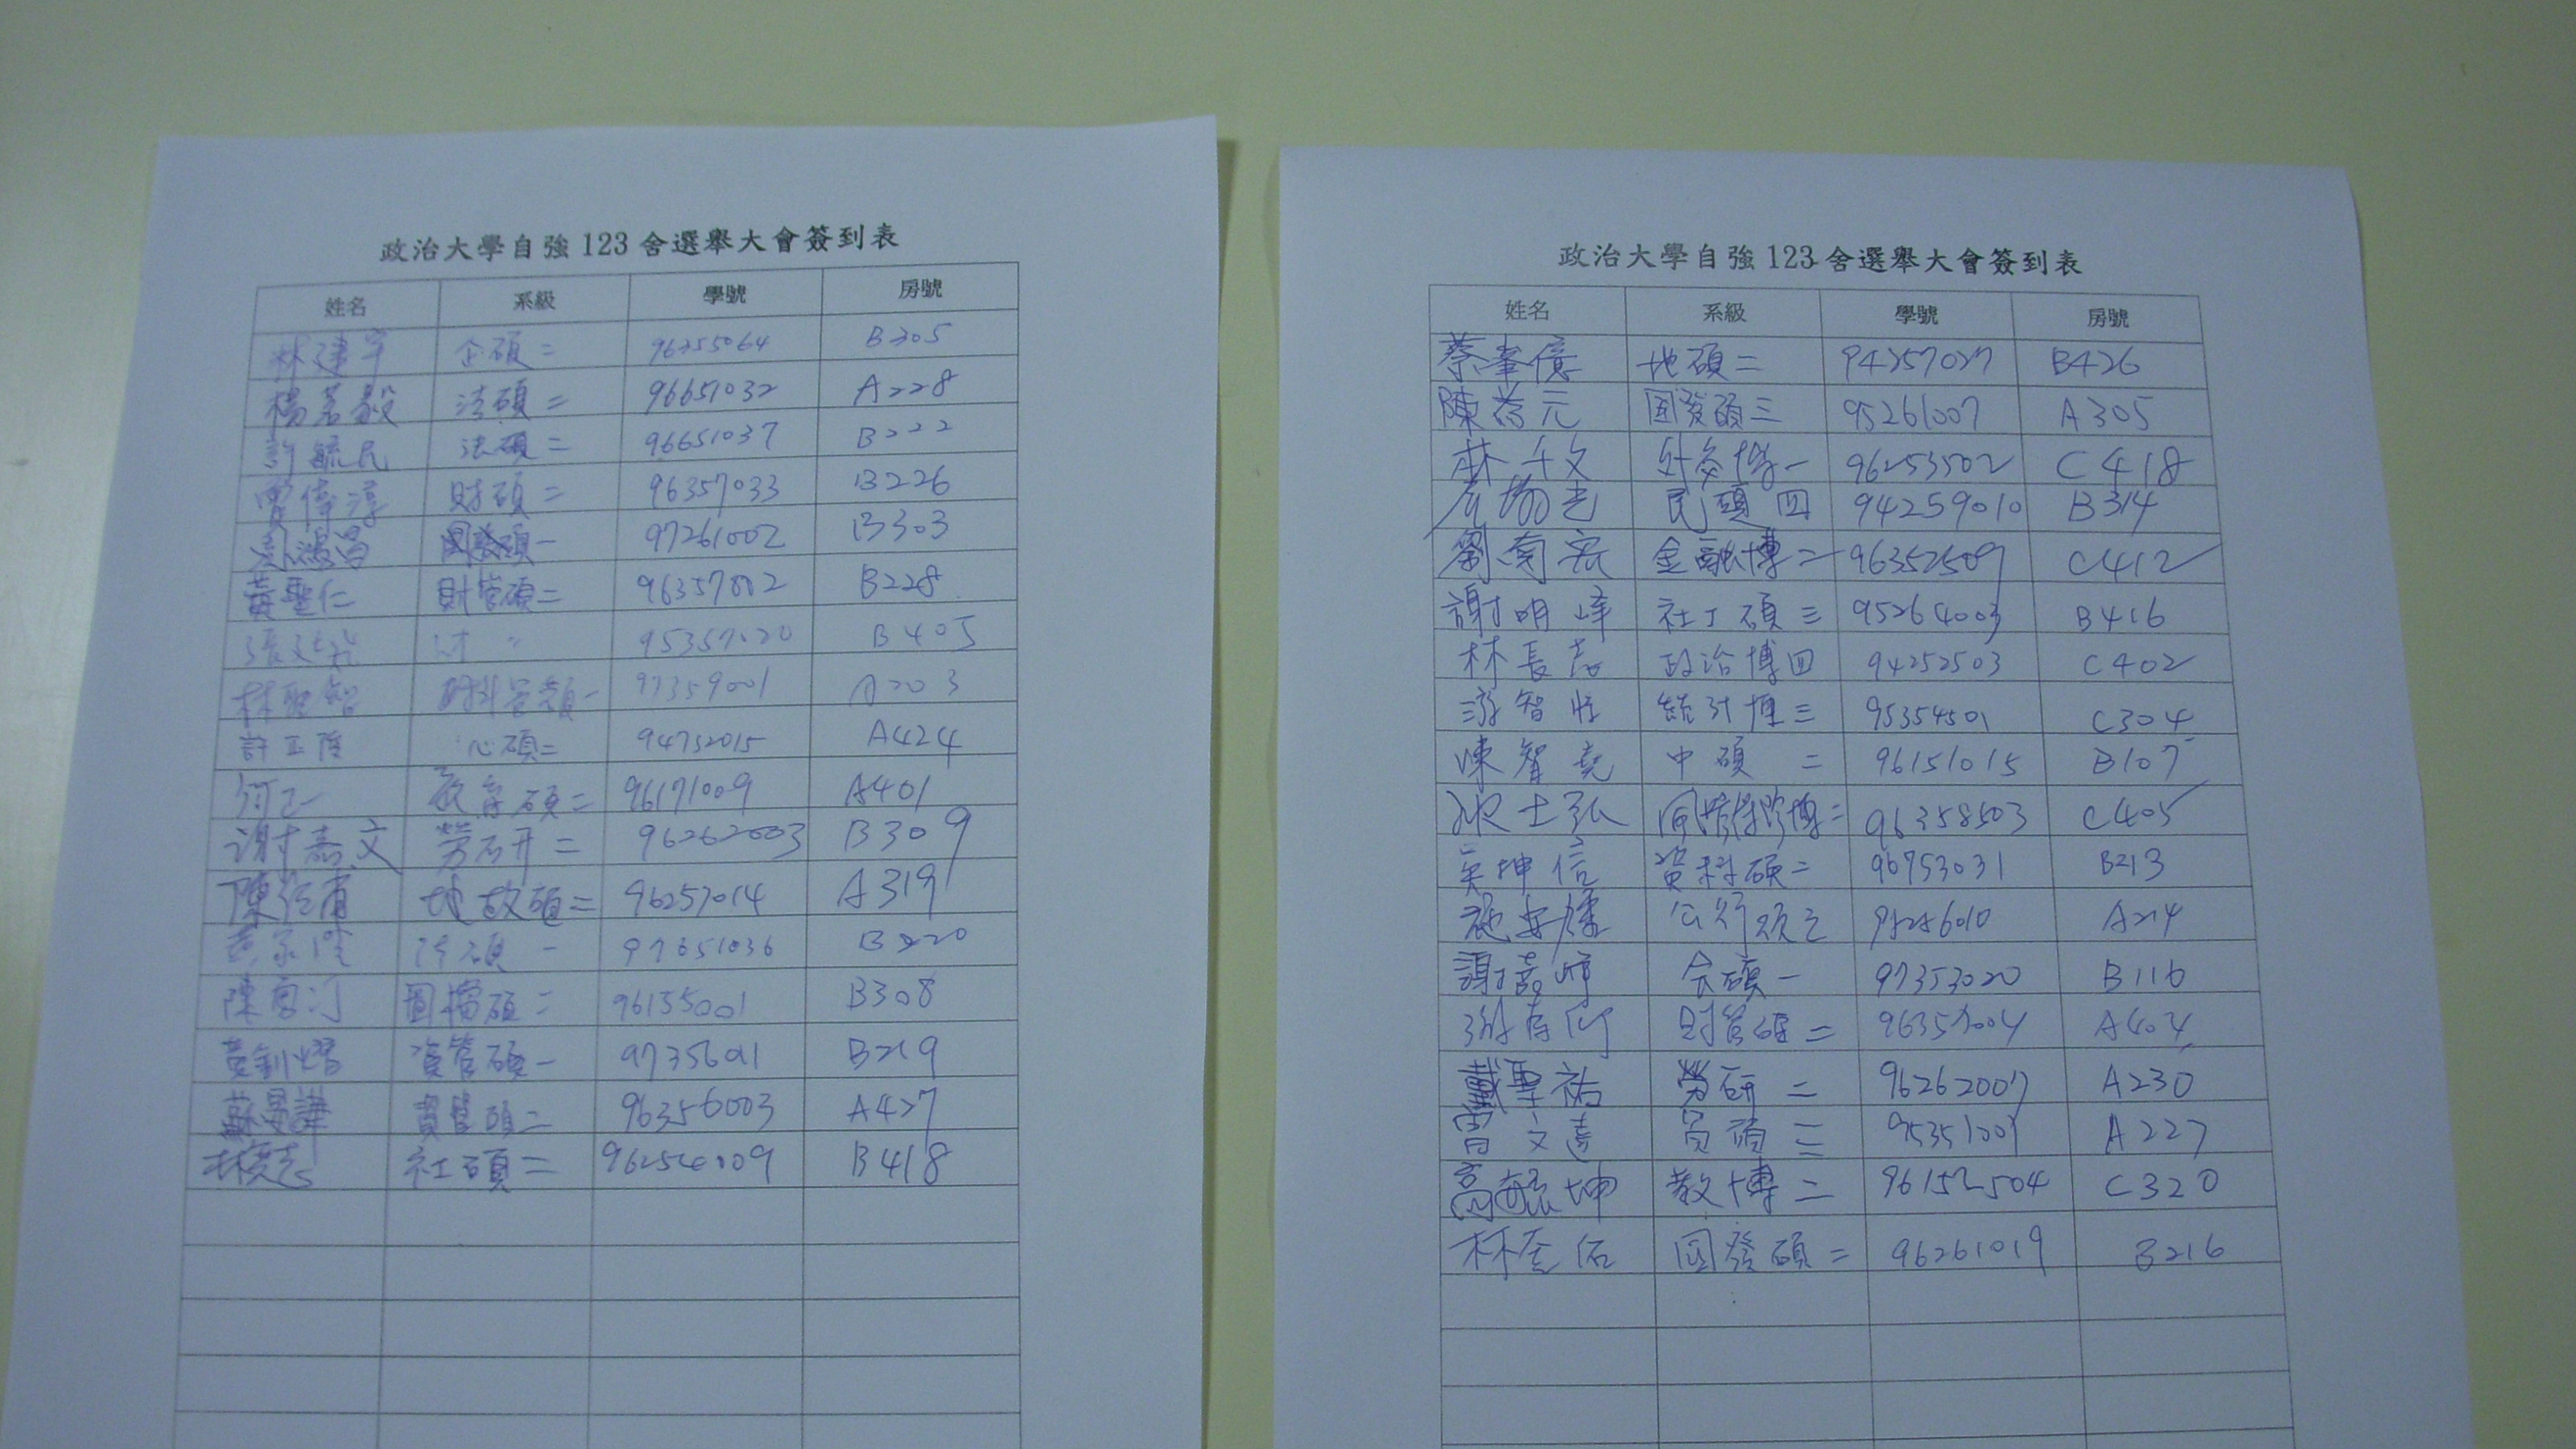 政治大學自強123舍選舉大會簽到表
姓名 系級 學號 房號
林建宇 企碩二 96355064 B305
楊茗毅 法碩二 96651032 A228
許毓民 法碩二 96651037 B222
賈偉淳 財碩二 96357033 B226
碩一 97261002 B303
黃聖仁 財管碩二 96357002 B228
財 〃 95357020 B405
林聖智 財管碩一 97359001 A203
許正 心碩二 94752015 A424
何 教育碩二 96171009 A401
謝嘉文 勞研二 96262003 B309
陳 地政碩二 96257014 A319
法碩一 97651036 B220
陳 圖檔碩二 96155001 B308
黃釧熠 資管碩一 97356011 B219
蘇昱諱 資管碩二 96356003 A427
林 社碩二 96254009 B418
政治大學自強123舍選舉大會簽到表
姓名 系級 學號 房號
蔡峯億 地碩二 94257027 B426
陳 元 國發碩三 95261007 A305
林 文 外交博一 96253502 C418
民碩四 94259010 B314
劉 宏 金融博二 96352509 C412
謝明峰 社工碩三 95264003 B416
林長志 政治博四 94252503 C402
游智 統計博三 95354501 C304
陳智堯 中碩 二 96151015 B107
士弘 風險保險博二 96358503 C405
吳坤信 資科碩二 96753031 B213
施 公行碩三 95256010 A214
謝嘉 會碩一 97353020 B116
財管碩二 96357004 A404
戴聖祐 勞研二 96262007 A230
文 碩三 95351001 A227
高毓坤 教博二 96152504 C320
林奎佑 國發碩二 96261019 B216